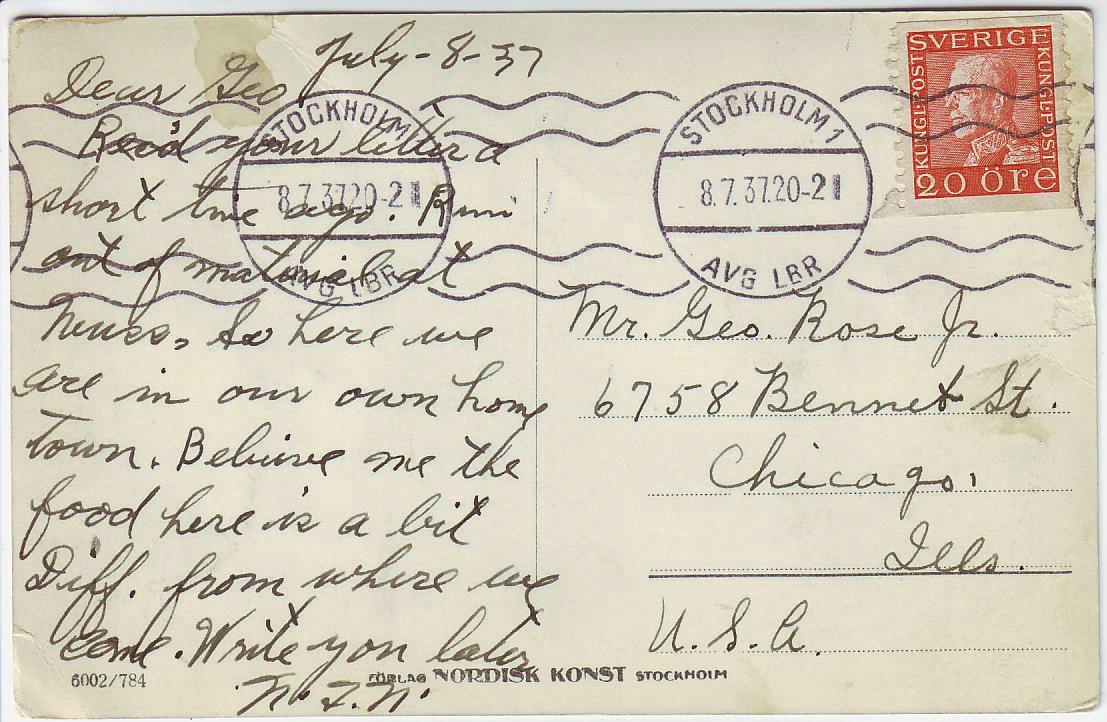 July-8-37
Dear Geo
Rec'd your letter a
short time ago. Run
out of material at
Neuss, So here we
are in our own home
Town. Believe me the
food here is a bit
Diff. from where we
come. Write you later
N.F.N.
STOCKHOLM 1
8.7.37.20-21
AVG LBR
STOCKHOLM 1
8.7.37.20-21
AVG LBR
SVERIGE
KUNGL.POST
KUNGL.POST
20 öre
Mr. Geo. Rose Jr.
6758 Bennet St.
Chicago,
Ills.
U.S.A.
6002/784
FÖRLAG NORDISK KONST STOCKHOLM